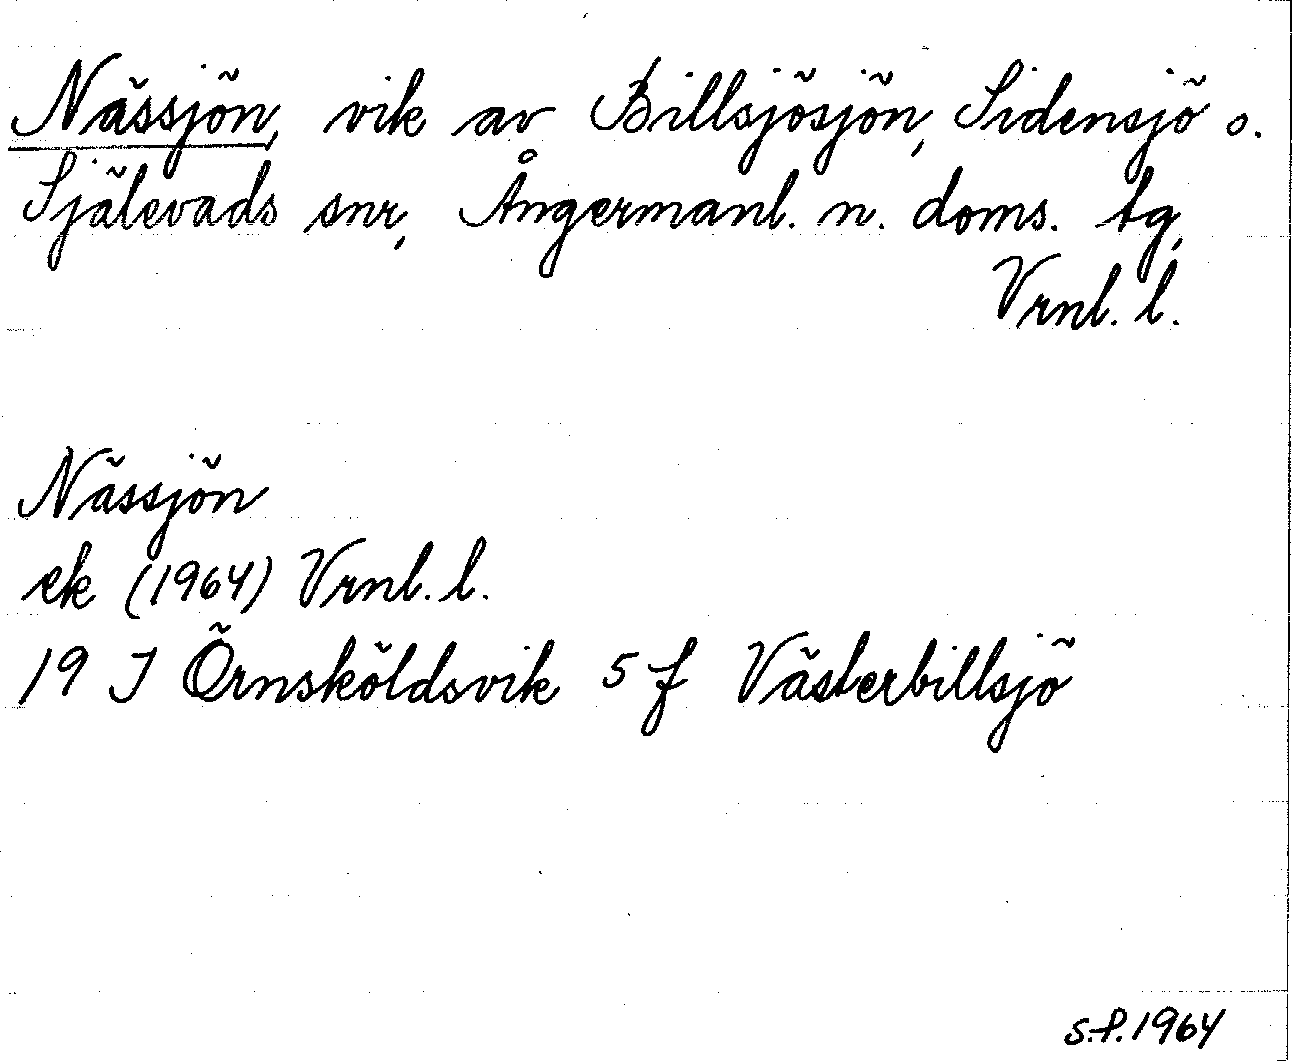 Nässjön, vik av Billsjösjön, Sidensjö o.
Själevads snr, Ångermanl. n. doms. tg,
Vrnl. l.
Nässjön
ek (1964) Vrnl. l.
19 J Örnsköldsvik 5 f Västerbillsjö
S.P. 1964